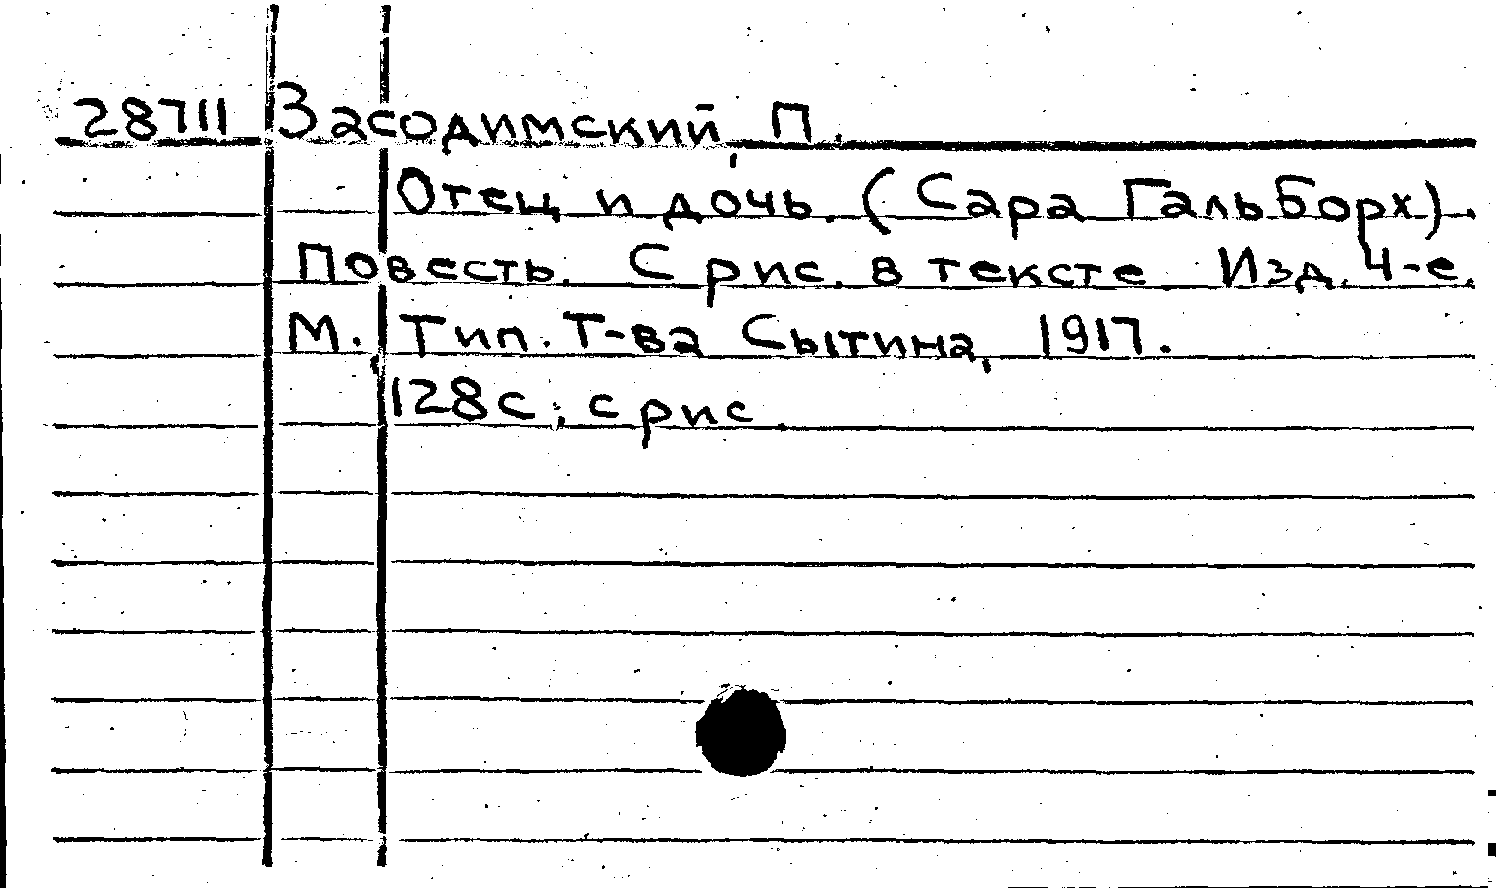 28711 Засодимский, П.
Отец и дочь. (Сара Гальборх).
Повесть. С рис. в тексте. Изд. 4-е.
М., Тип. Т-ва Сытина, 1917.
128с.; с рис.